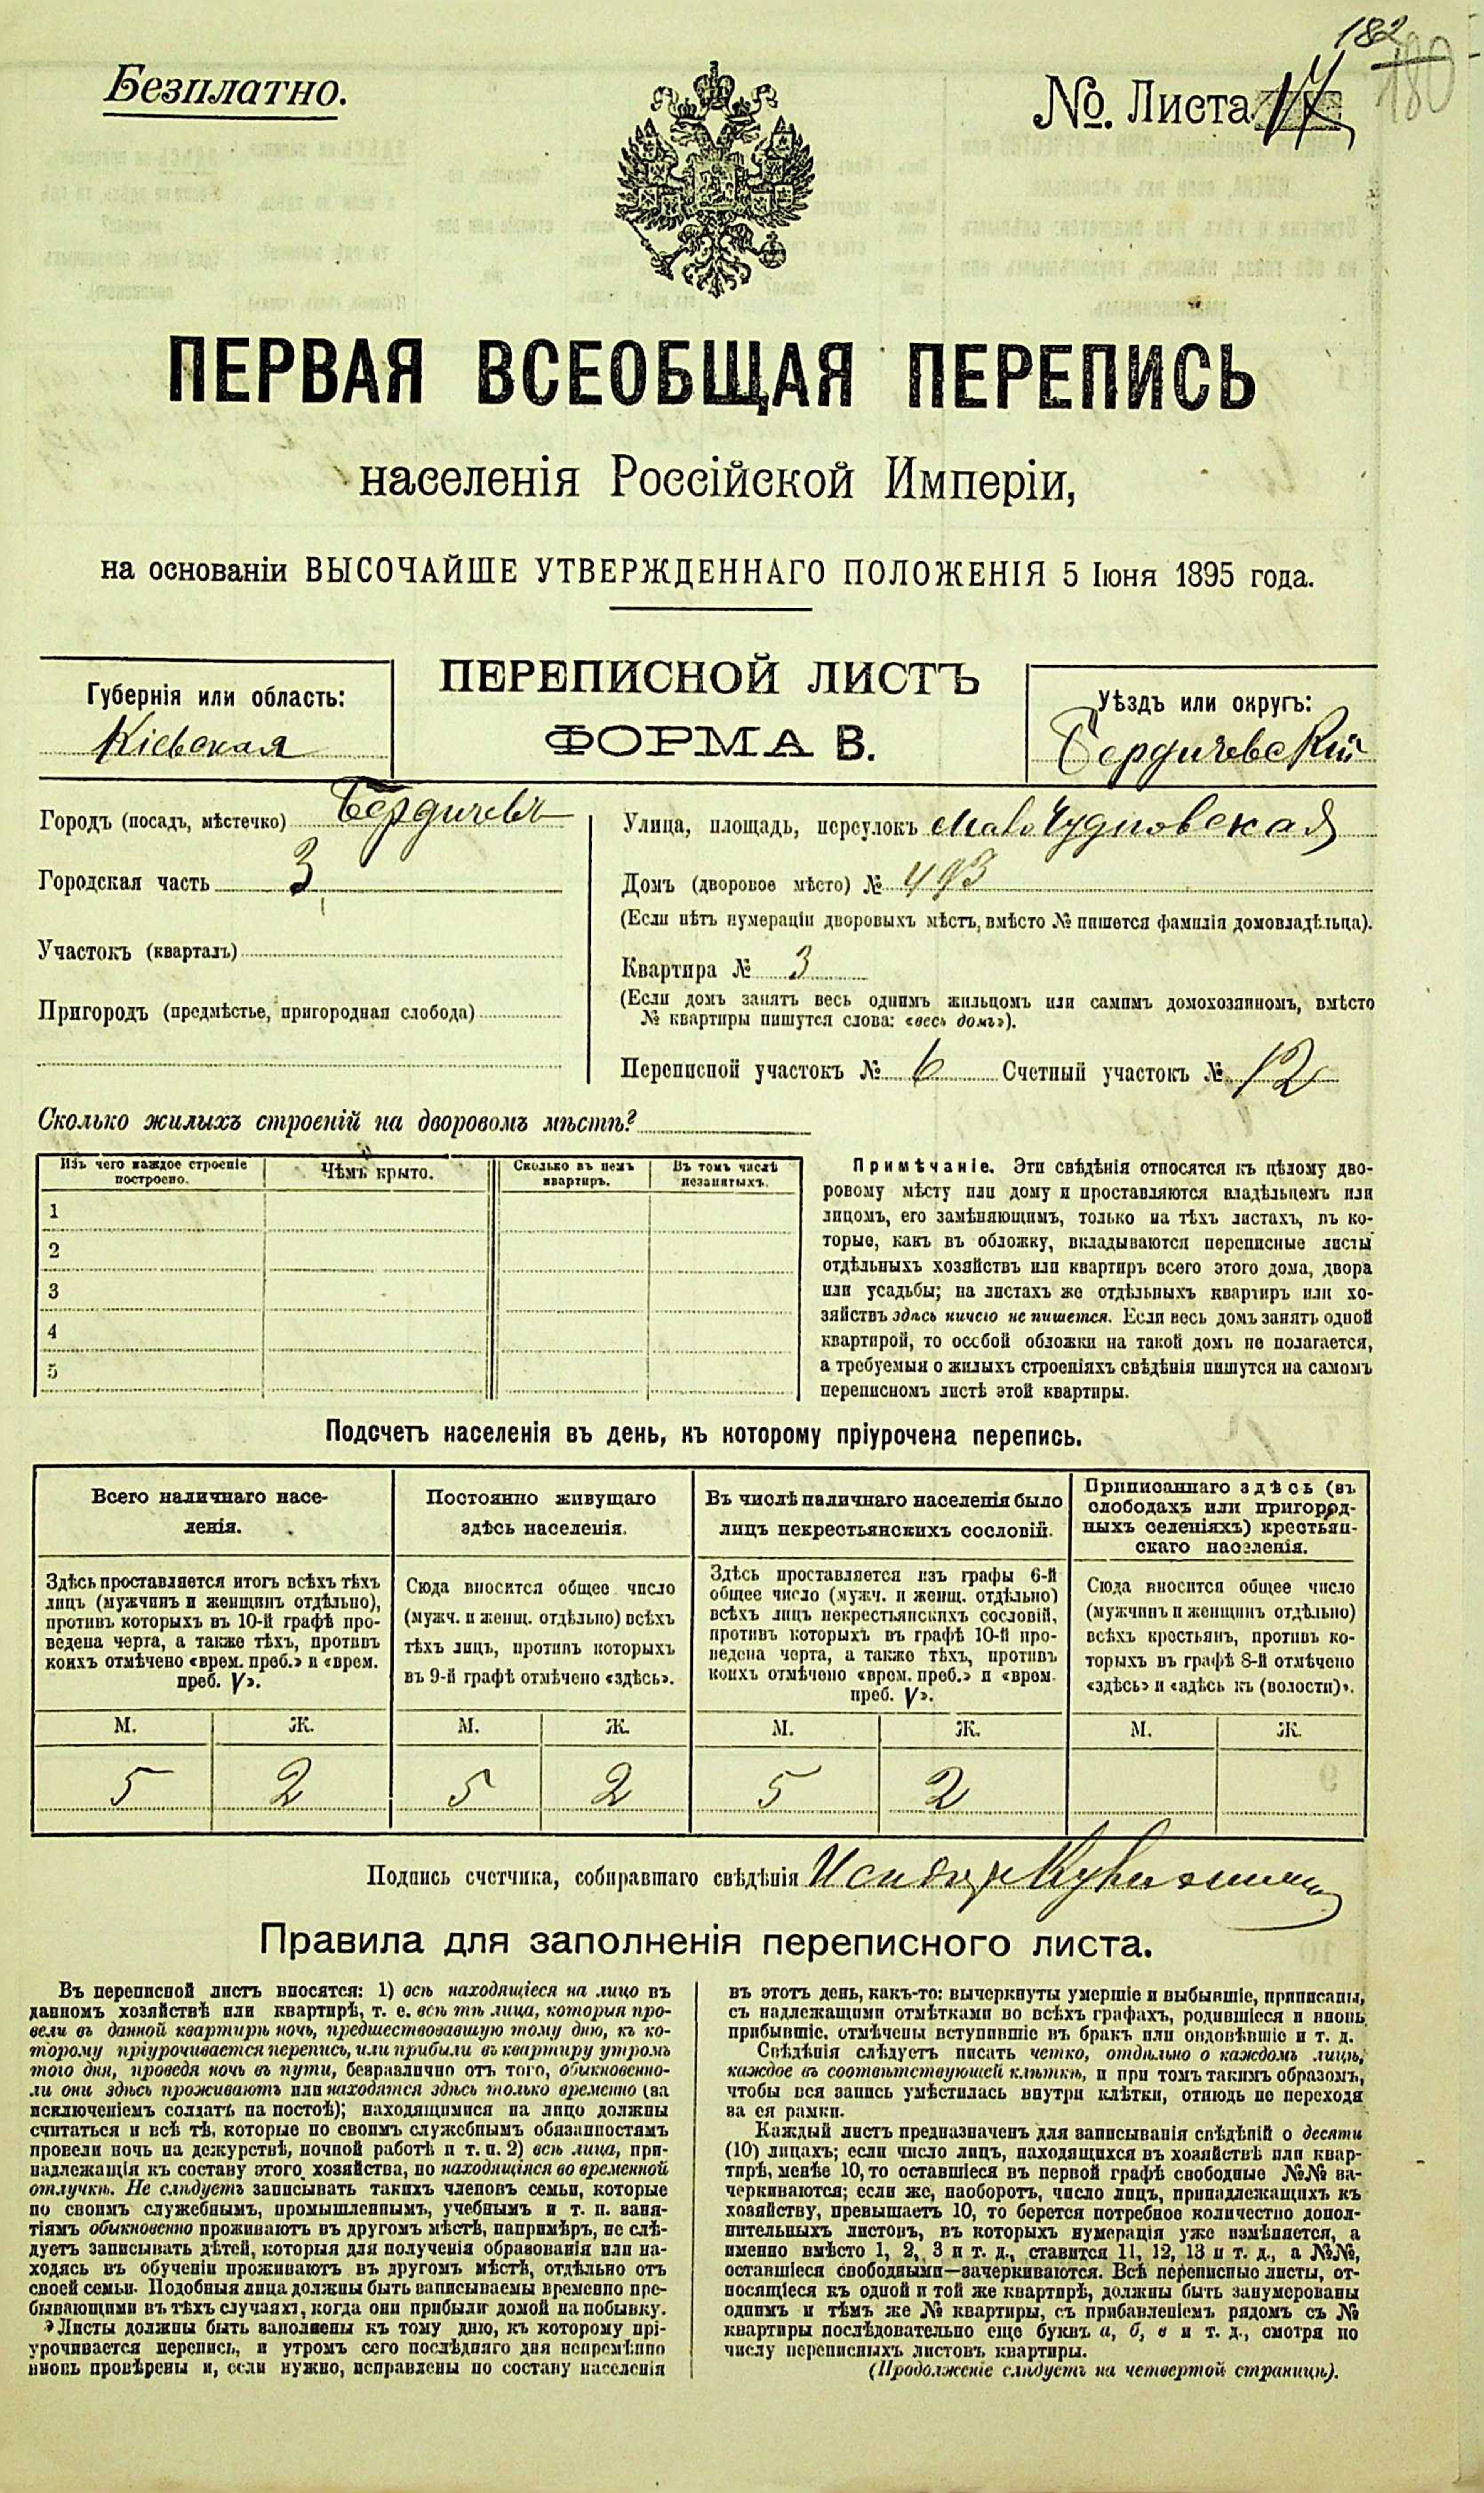 182
180
Безплатно.
№. Листа 17
ПЕРВАЯ ВСЕОБЩАЯ ПЕРЕПИСЬ
населенія Россійской Имперіи,
на основаніи ВЫСОЧАЙШЕ УТВЕРЖДЕННАГО ПОЛОЖЕНІЯ 5 Іюня 1895 года.
Губернія или область:
Кіевская
ПЕРЕПИСНОЙ ЛИСТЪ
ФОРМА В.
Уѣздъ или округъ:
Бердичевскій
Городъ (посадъ, мѣстечко) Бердичевъ
Городская часть 3
Участокъ (кварталъ)
Пригородъ (предмѣстье, пригородная слобода)
Улица, площадь, переулокъ Мало Чудновская
Домъ (дворовое мѣсто) № 493
(Если нѣтъ нумераціи дворовыхъ мѣстъ, вмѣсто № пишется фамилія домовладѣльца).
Квартира № 3
(Если домъ занятъ весь однимъ жильцомъ или самимъ домохозяиномъ, вмѣсто
№ квартиры пишутся слова: «весь домъ»).
Переписной участокъ № 6 Счетный участокъ № 12
Сколько жилыхъ строеній на дворовомъ мѣстѣ?
Изъ чего каждое строеніе
построено.
Чѣмъ крыто.
Сколько въ немъ
квартиръ.
Въ томъ числѣ
незанятыхъ.
1
2
3
4
5
Примѣчаніе. Эти свѣдѣнія относятся къ цѣлому дво-
ровому мѣсту или дому и проставляются владѣльцемъ или
лицомъ, его замѣняющимъ, только на тѣхъ листахъ, въ ко-
торые, какъ въ обложку, вкладываются переписные листы
отдѣльныхъ хозяйствъ или квартиръ всего этого дома, двора
или усадьбы; на листахъ же отдѣльныхъ квартиръ или хо-
зяйствъ здѣсь ничего не пишется. Если весь домъ занятъ одной
квартирой, то особой обложки на такой домъ не полагается,
а требуемыя о жилыхъ строеніяхъ свѣдѣнія пишутся на самомъ
переписномъ листѣ этой квартиры.
Подсчетъ населенія въ день, къ которому пріурочена перепись.
Всего наличнаго насе-
ленія.
Здѣсь проставляется итогъ всѣхъ тѣхъ
лицъ (мужчинъ и женщинъ отдѣльно),
противъ которыхъ въ 10-й графѣ про-
ведена черта, а также тѣхъ, противъ
коихъ отмѣчено «врем. преб.» и «врем.
преб. V».
Постоянно живущаго
здѣсь населенія.
Сюда вносится общее число
(мужч. и женщ. отдѣльно) всѣхъ
тѣхъ лицъ, противъ которыхъ
въ 9-й графѣ отмѣчено «здѣсь».
Въ числѣ наличнаго населенія было
лицъ некрестьянскихъ сословій.
Здѣсь проставляется изъ графы 6-й
общее число (мужч. и женщ. отдѣльно)
всѣхъ лицъ некрестьянскихъ сословій,
противъ которыхъ въ графѣ 10-й про-
ведена черта, а также тѣхъ, противъ
коихъ отмѣчено «врем. преб.» и «врем.
преб. V».
Приписаннаго здѣсь (въ
слободахъ или пригород-
ныхъ селеніяхъ) крестьян-
скаго населенія.
Сюда вносится общее число
(мужчинъ и женщинъ отдѣльно)
всѣхъ крестьянъ, противъ ко-
торыхъ въ графѣ 8-й отмѣчено
«здѣсь» и «здѣсь къ (волости)».
М. Ж. М. Ж. М. Ж. М. Ж.
5 2 5 2 5 2
Подпись счетчика, собиравшаго свѣдѣнія
Правила для заполненія переписного листа.
Въ переписной листъ вносятся: 1) всѣ находящіеся на лицо въ
данномъ хозяйствѣ или квартирѣ, т. е. всѣ тѣ лица, которыя про-
вели въ данной квартирѣ ночь, предшествовавшую тому дню, къ ко-
торому пріурочивается перепись, или прибыли въ квартиру утромъ
того дня, проведя ночь въ пути, безразлично отъ того, обыкновенно-
ли они здѣсь проживаютъ или находятся здѣсь только временно (за
исключеніемъ солдатъ на постоѣ); находящимися на лицо должны
считаться и всѣ тѣ, которые по своимъ служебнымъ обязанностямъ
провели ночь на дежурствѣ, ночной работѣ и т. п. 2) всѣ лица, при-
надлежащія къ составу этого хозяйства, но находящіяся во временной
отлучкѣ. Не слѣдуетъ записывать такихъ членовъ семьи, которые
по своимъ служебнымъ, промышленнымъ, учебнымъ и т. п. заня-
тіямъ обыкновенно проживаютъ въ другомъ мѣстѣ, напримѣръ, не слѣ-
дуетъ записывать дѣтей, которыя для полученія образованія или на-
ходясь въ обученіи проживаютъ въ другомъ мѣстѣ, отдѣльно отъ
своей семьи. Подобныя лица должны быть записываемы временно пре-
бывающими въ тѣхъ случаяхъ, когда они прибыли домой на побывку.
Листы должны быть заполнены къ тому дню, къ которому прі-
урочивается перепись, и утромъ сего послѣдняго дня непремѣнно
вновь провѣрены и, если нужно, исправлены по составу населенія
въ этотъ день, какъ-то: вычеркнуты умершіе и выбывшіе, приписаны,
съ надлежащими отмѣтками во всѣхъ графахъ, родившіеся и вновь
прибывшіе, отмѣчены вступившіе въ бракъ или овдовѣвшіе и т. д.
Свѣдѣнія слѣдуетъ писать четко, отдѣльно о каждомъ лицѣ,
каждое въ соотвѣтствующей клѣткѣ, и при томъ такимъ образомъ,
чтобы вся запись умѣстилась внутри клѣтки, отнюдь не переходя
за ея рамки.
Каждый листъ предназначенъ для записыванія свѣдѣній о десяти
(10) лицахъ; если число лицъ, находящихся въ хозяйствѣ или квар-
тирѣ, менѣе 10, то оставшіеся въ первой графѣ свободные №№ за-
черкиваются; если же, наоборотъ, число лицъ, принадлежащихъ къ
хозяйству, превышаетъ 10, то берется потребное количество допол-
нительныхъ листовъ, въ которыхъ нумерація уже измѣняется, а
именно вмѣсто 1, 2, 3 и т. д., ставится 11, 12, 13 и т. д., а №№,
оставшіеся свободными—зачеркиваются. Всѣ переписные листы, от-
носящіеся къ одной и той же квартирѣ, должны быть занумерованы
однимъ и тѣмъ же № квартиры, съ прибавленіемъ рядомъ съ №
квартиры послѣдовательно еще буквъ а, б, в и т. д., смотря по
числу переписныхъ листовъ квартиры.
(Продолженіе слѣдуетъ на четвертой страницѣ).